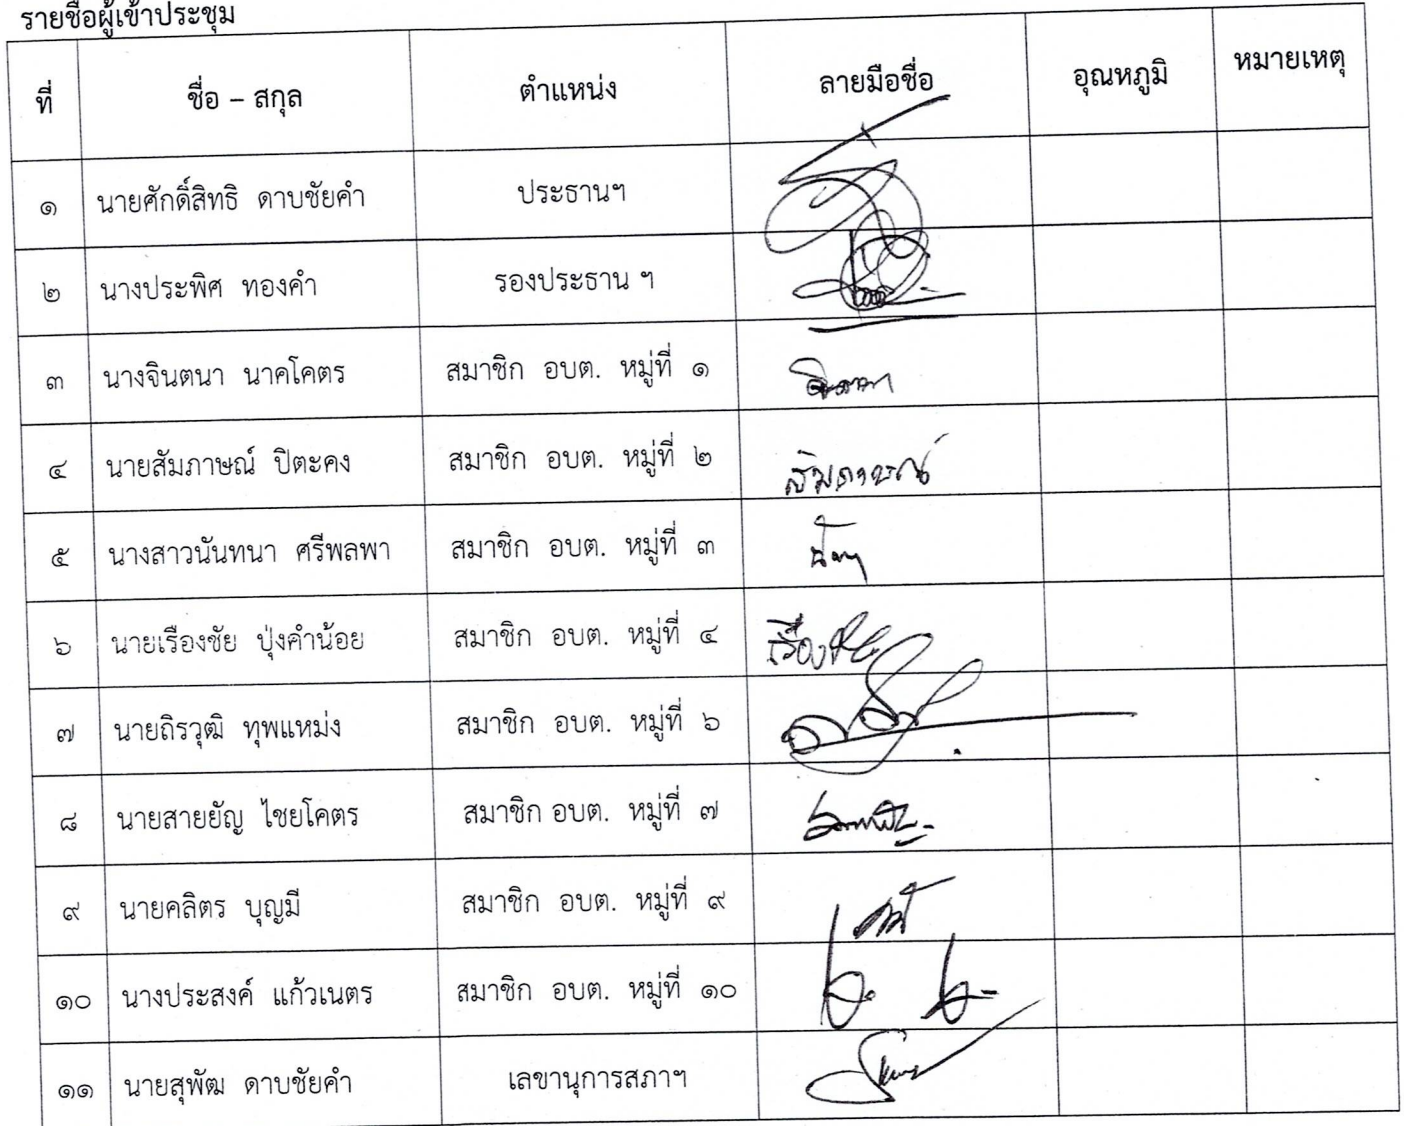 รายชื่อผู้เข้าประชุม
ที่ ชื่อ – สกุล ตำแหน่ง ลายมือชื่อ อุณหภูมิ หมายเหตุ
๑ นายศักดิ์สิทธิ ดาบชัยคำ ประธานฯ
๒ นางประพิศ ทองคำ รองประธาน ฯ
๓ นางจินตนา นาคโคตร สมาชิก อบต. หมู่ที่ ๑
๔ นายสัมภาษณ์ ปิตะคง สมาชิก อบต. หมู่ที่ ๒ สัมภาษณ์
๕ นางสาวนันทนา ศรีพลพา สมาชิก อบต. หมู่ที่ ๓
๖ นายเรืองชัย ปุ่งคำน้อย สมาชิก อบต. หมู่ที่ ๔ เรืองชัย
๗ นายถิรวุฒิ ทุพแหม่ง สมาชิก อบต. หมู่ที่ ๖
๘ นายสายยัญ ไชยโคตร สมาชิก อบต. หมู่ที่ ๗
๙ นายคลิตร บุญมี สมาชิก อบต. หมู่ที่ ๙
๑๐ นางประสงค์ แก้วเนตร สมาชิก อบต. หมู่ที่ ๑๐
๑๑ นายสุพัฒ ดาบชัยคำ เลขานุการสภาฯ